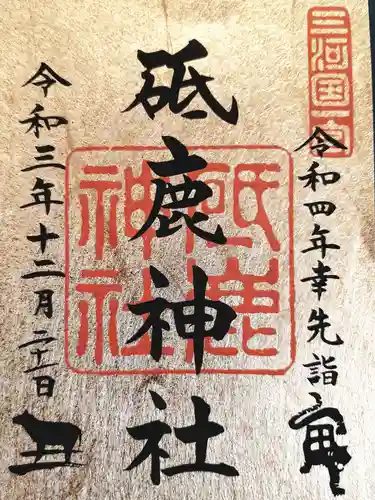 三河国一宮
令和四年幸先詣
砥鹿神社
砥鹿神社
令和三年十二月二十一日
丑